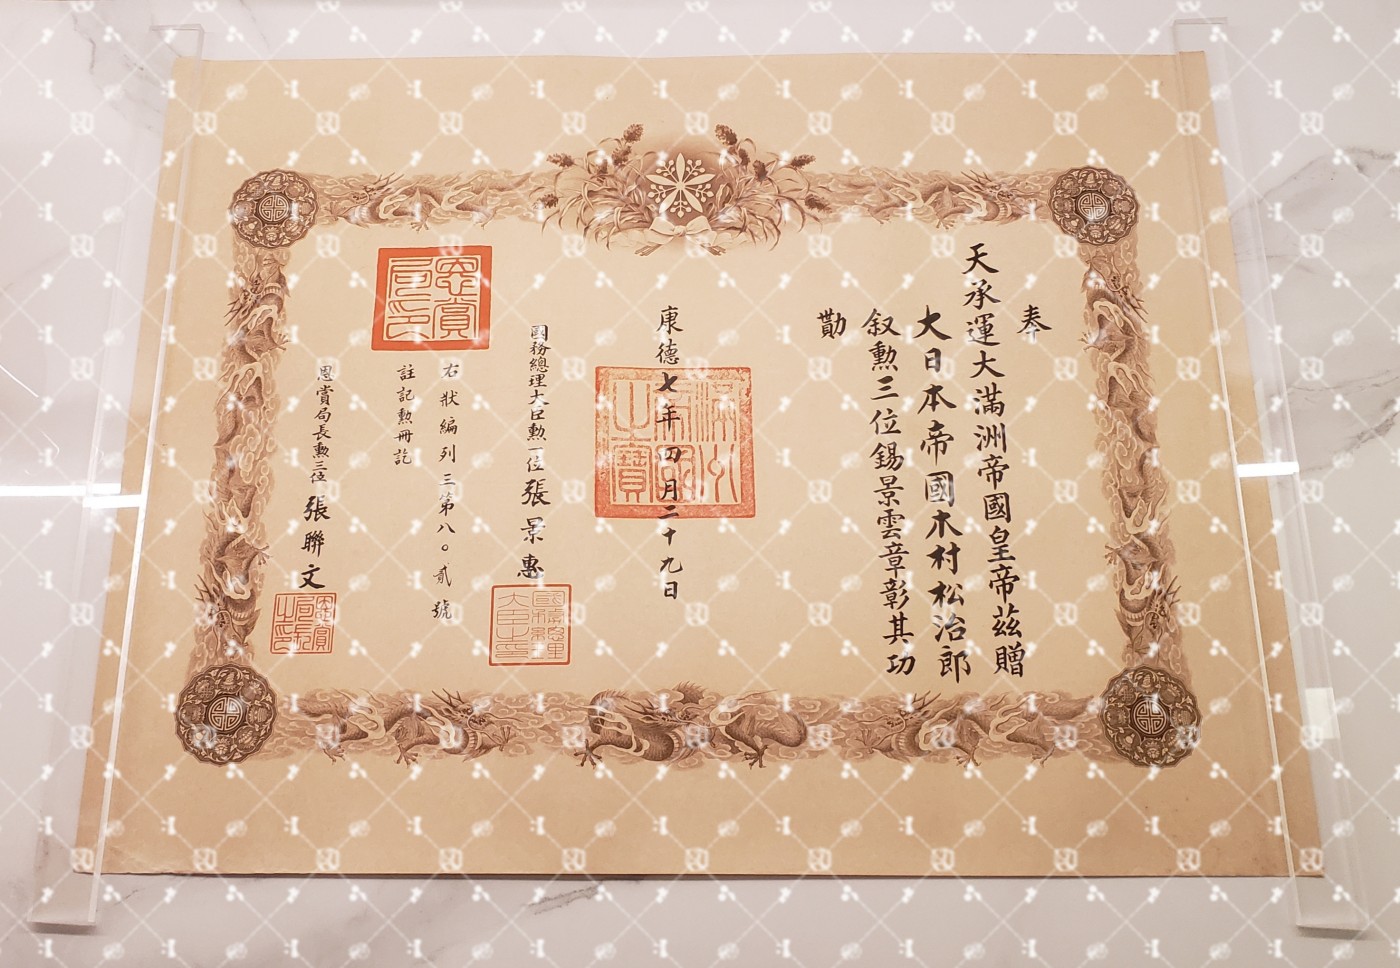 奉
天承運大滿洲帝國皇帝茲贈
大日本帝國木村松治郎
叙勲三位錫景雲章彰其功
勩
康德七年四月二十九日
滿洲帝國之寶
國務總理大臣勲一位張景惠
國務總理大臣之印
恩賞局印
右狀編列三第八〇貳號
註記勲冊訖
恩賞局長勲三位張聯文
恩賞局長之印